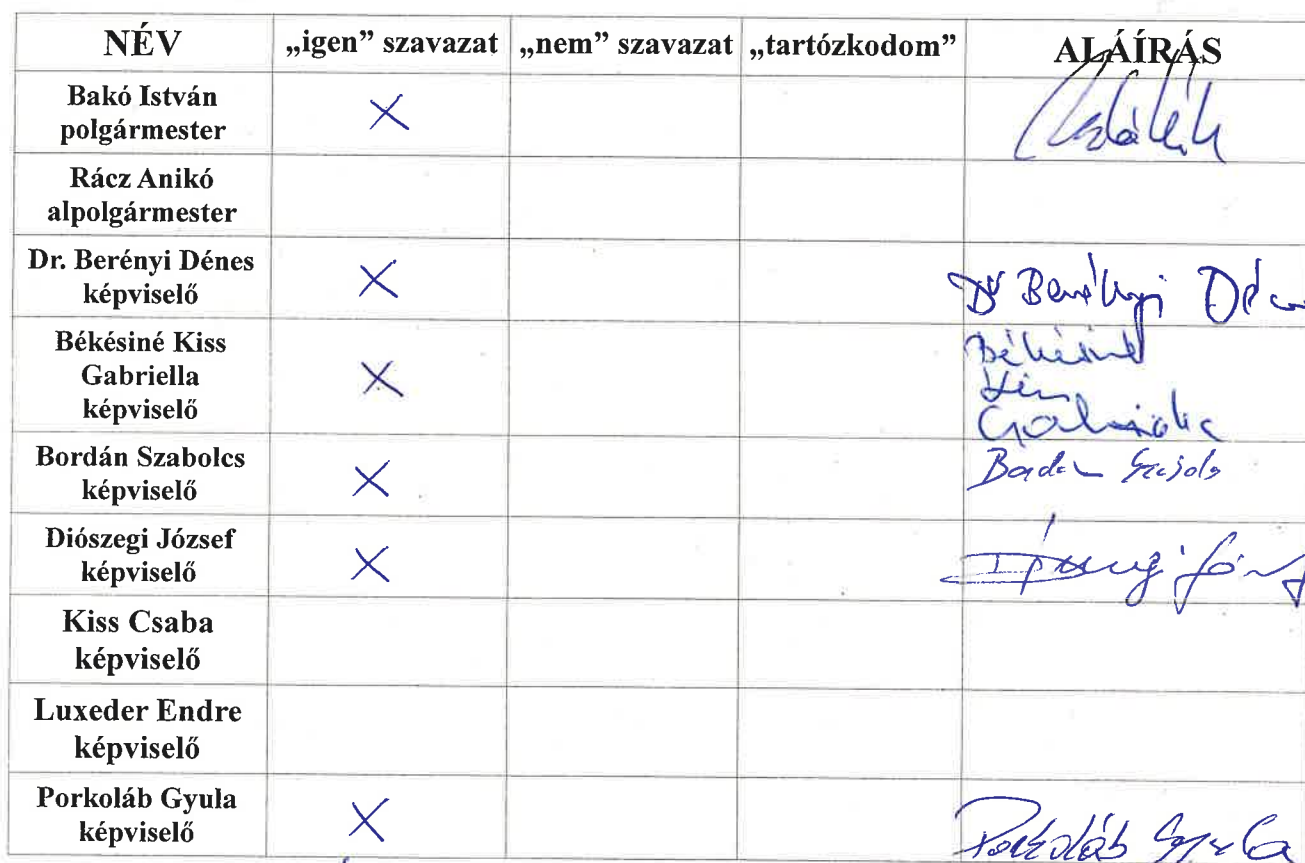 NÉV „igen” szavazat „nem” szavazat „tartózkodom” ALÁÍRÁS
Bakó István
polgármester X
Rácz Anikó
alpolgármester
Dr. Berényi Dénes
képviselő X Dr Berényi Dénes
Békésiné Kiss
Gabriella
képviselő X Békésiné
Kiss
Gabriella
Bordán Szabolcs
képviselő X Bordán Szabolcs
Diószegi József
képviselő X Diószegi József
Kiss Csaba
képviselő
Luxeder Endre
képviselő
Porkoláb Gyula
képviselő X Porkoláb Gyula